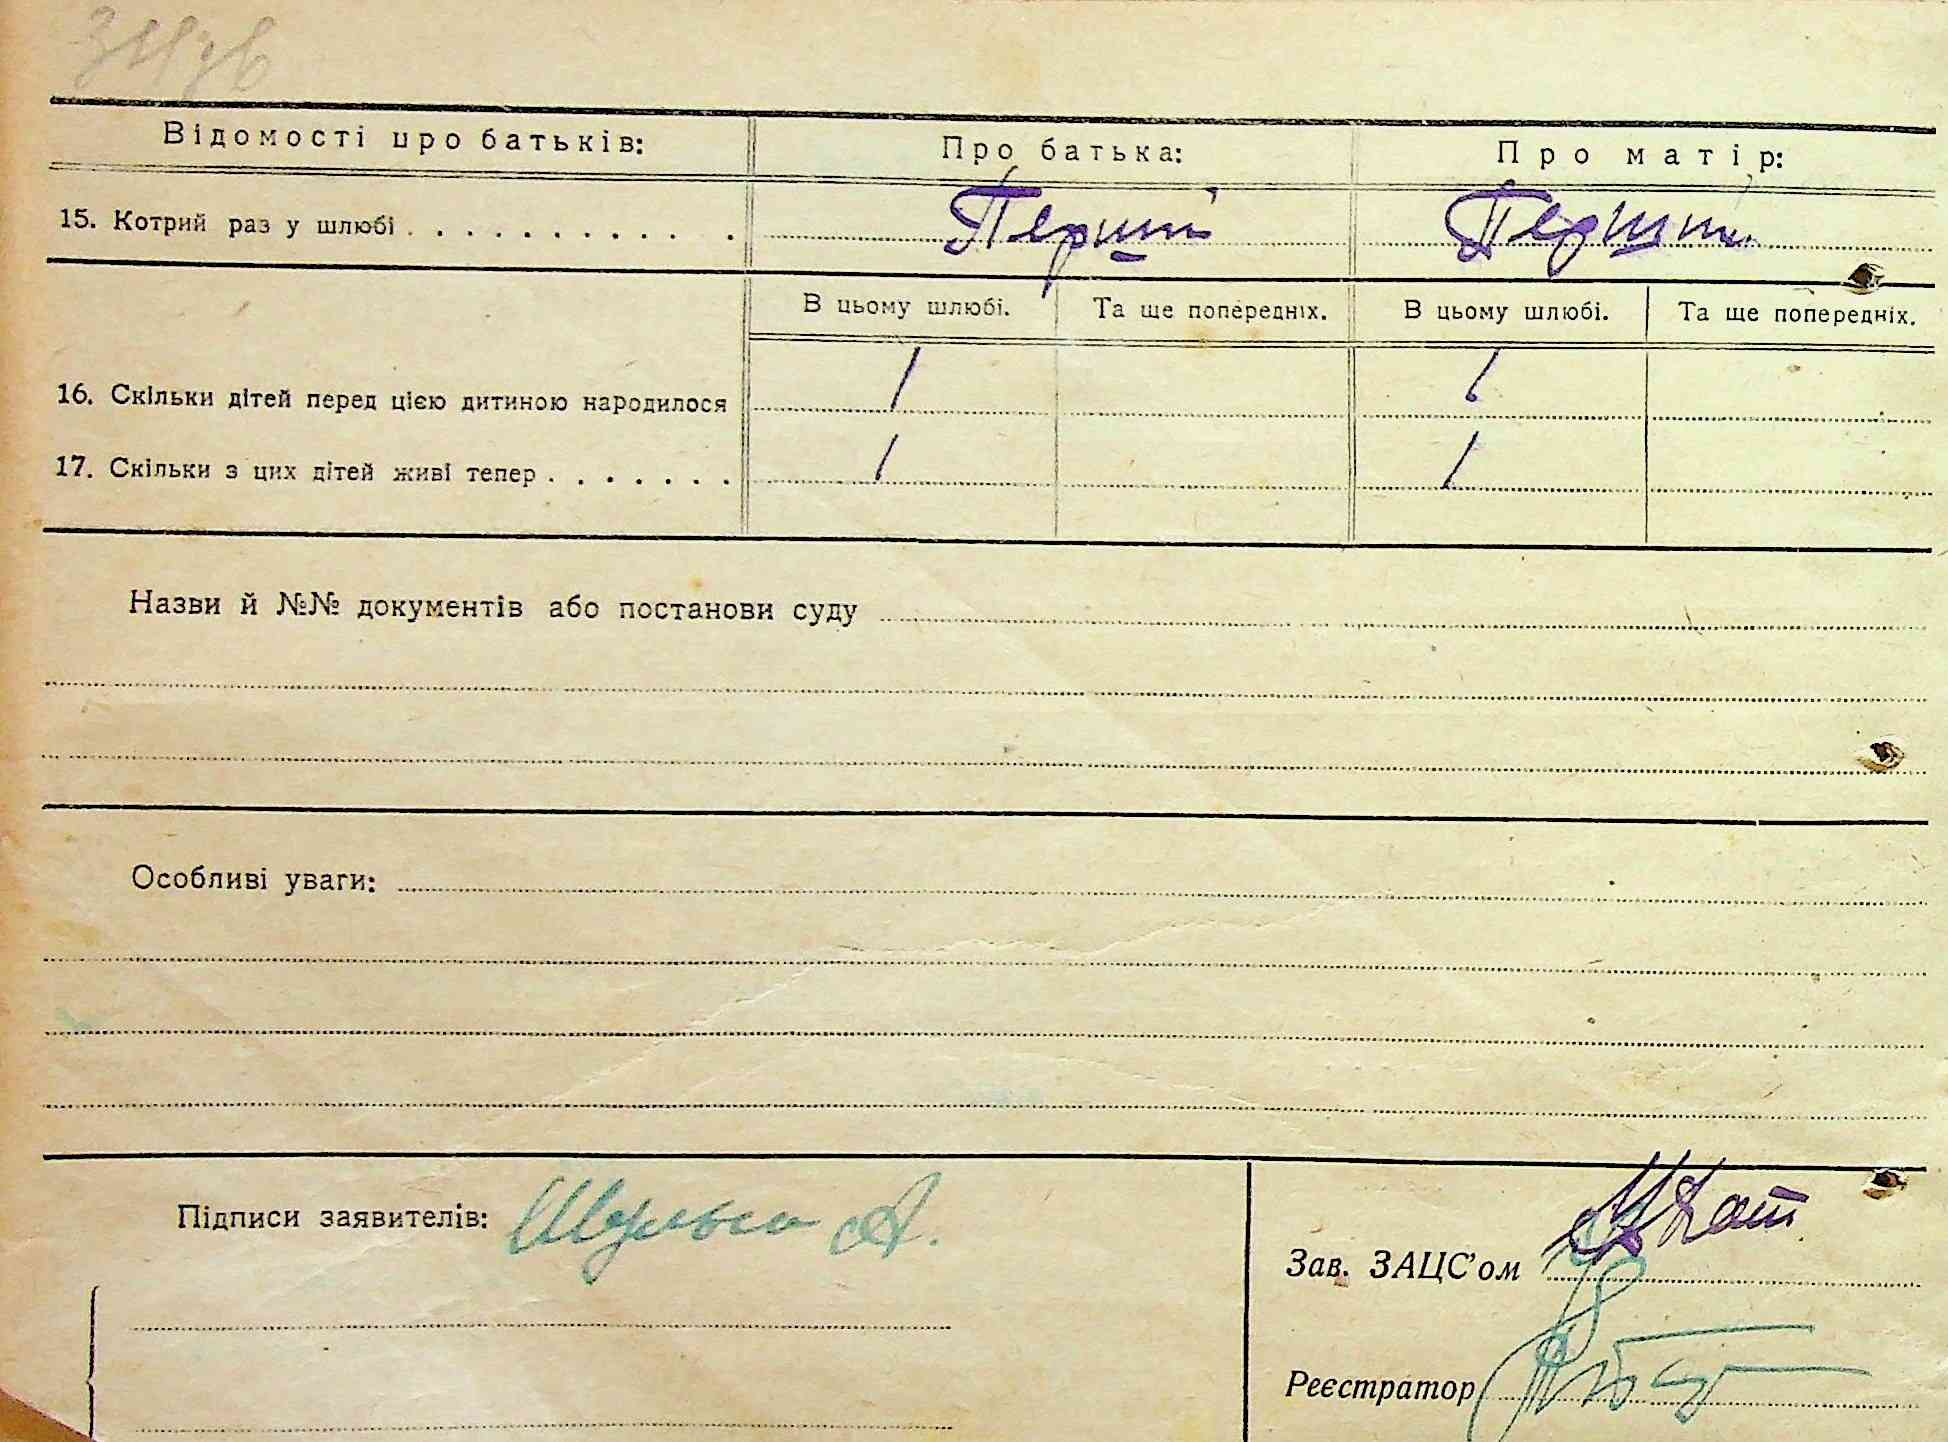 Відомості про батьків: Про батька: Про матір:
15. Котрий раз у шлюбі Перший Перший
В цьому шлюбі. Та ще попередніх. В цьому шлюбі. Та ще попередніх.
16. Скільки дітей перед цією дитиною народилося 1 1
17. Скільки з цих дітей живі тепер 1 1
Назви й №№ документів або постанови суду
Особливі уваги:
Підписи заявителів: А.
Зав. ЗАЦС'ом
Реєстратор